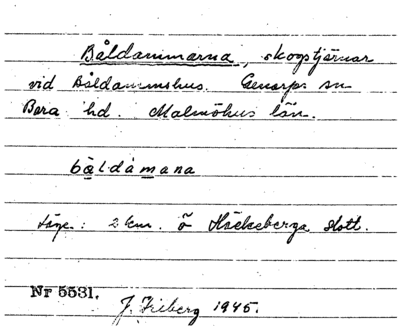 Båldammarna, skogstjärnar
vid Båldammshus. Genarps sn
Bara hd. Malmöhus län.
båldámana
Läge: 2 km. ö Häckeberga slott.
Nr 5531.
J. Friberg 1945.